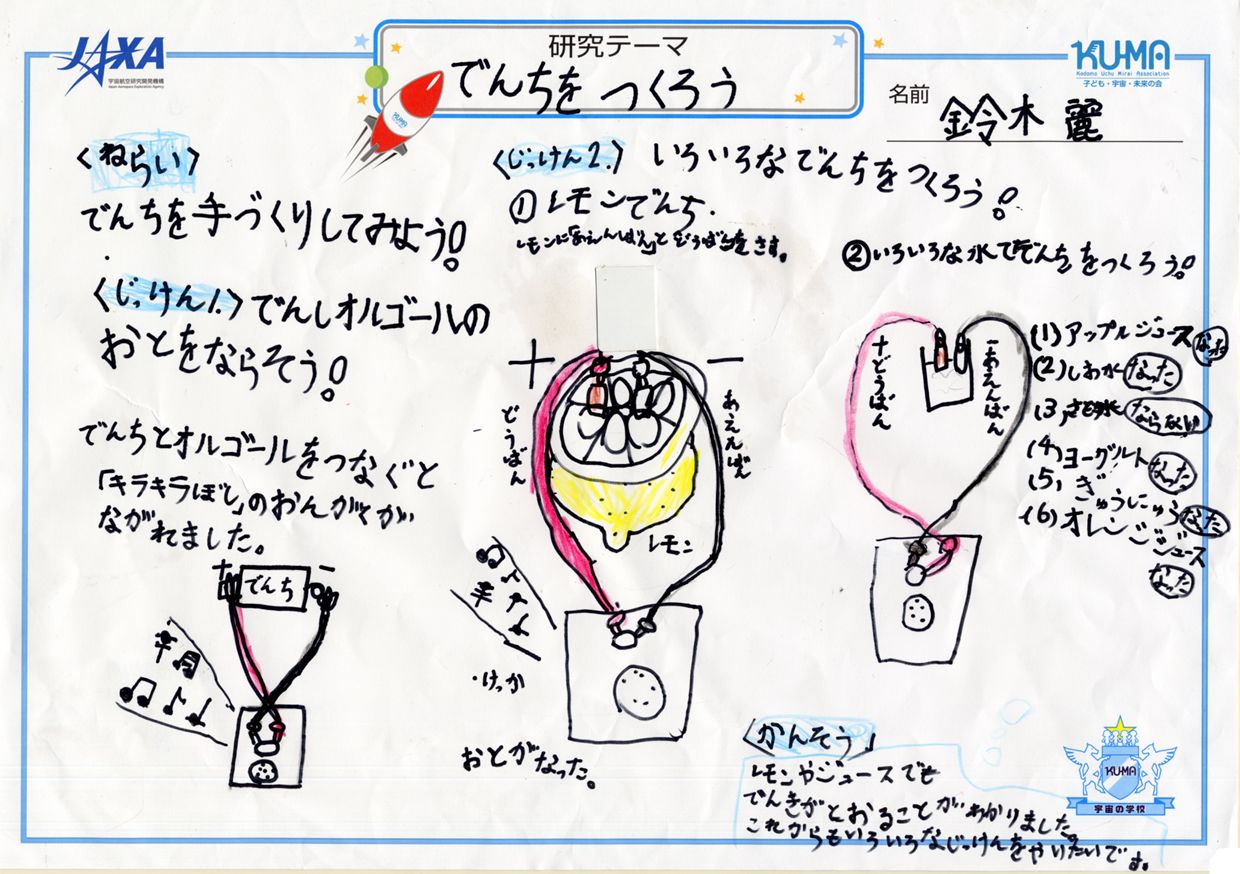 JAXA
宇宙航空研究開発機構
Japan Aerospace Exploration Agency
研究テーマ
でんちを つくろう
KUMA
KUMA
Kodomo Uchu Mirai Association
子ども・宇宙・未来の会
名前
鈴木 麗
〈ねらい〉
でんちを手づくりしてみよう!
〈じっけん1.〉でんしオルゴールの
おとをならそう!
でんちとオルゴールをつなぐと
「キラキラぼし」のおんがくが
ながれました。
+ でんち -
〈じっけん2.〉 いろいろなでんちをつくろう!
① レモンでんち.
レモンに「あえんばん」とどうばんをさす。
+ -
どうばん
あええばん
レモン
・けっか
おとがなった。
②いろいろな水ででんちをつくろう!
+どうばん
-あえんばん
(1)アップルジュース なった
(2)しお水 なった
(3)さとう水 ならない
(4)ヨーグルト なった
(5)ぎゅうにゅう なった
(6)オレンジジュース
なった
〈かんそう」
レモンやジュースでも
でんきがとおることがわかりました。
これからもいろいろなじっけんをやいたいです。
KU-MA
宇宙の学校